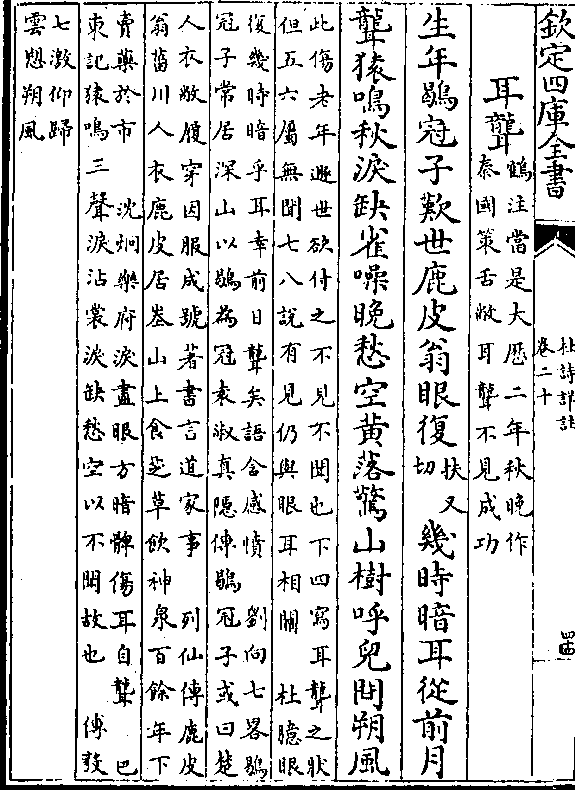 欽定四庫全書
杜詩詳註
卷二十
耳聾
鶴注當是大厯二年秋晚作
秦國策舌敝耳聾不見成功
生年鶡冠子歎世鹿皮翁眼復扶又切幾時暗耳從前月
聾猿鳴秋淚缺雀噪晚愁空黄落驚山樹呼兒問朔風
此傷老年避世欲付之不見不聞也下四寫耳聾之狀
但五六屬無聞七八說有見仍與眼耳相關 杜臆眼
復幾時暗乎耳幸前日聾矣語含感憤 劉向七畧鶡
冠子常居深山以鶡為冠袁淑真隱傳鶡冠子或曰楚
人衣敝履穿因服成號著書言道家事 列仙傳鹿皮
翁菑川人衣鹿皮居岑山上食芝草飲神泉百餘年下
賣藥於市 沈炯樂府淚盡眼方暗髀傷耳自聾 巴
東記猿鳴三聲淚沾裳淚缺愁空以不聞故也 傅毅
七激仰歸
雲愬朔風